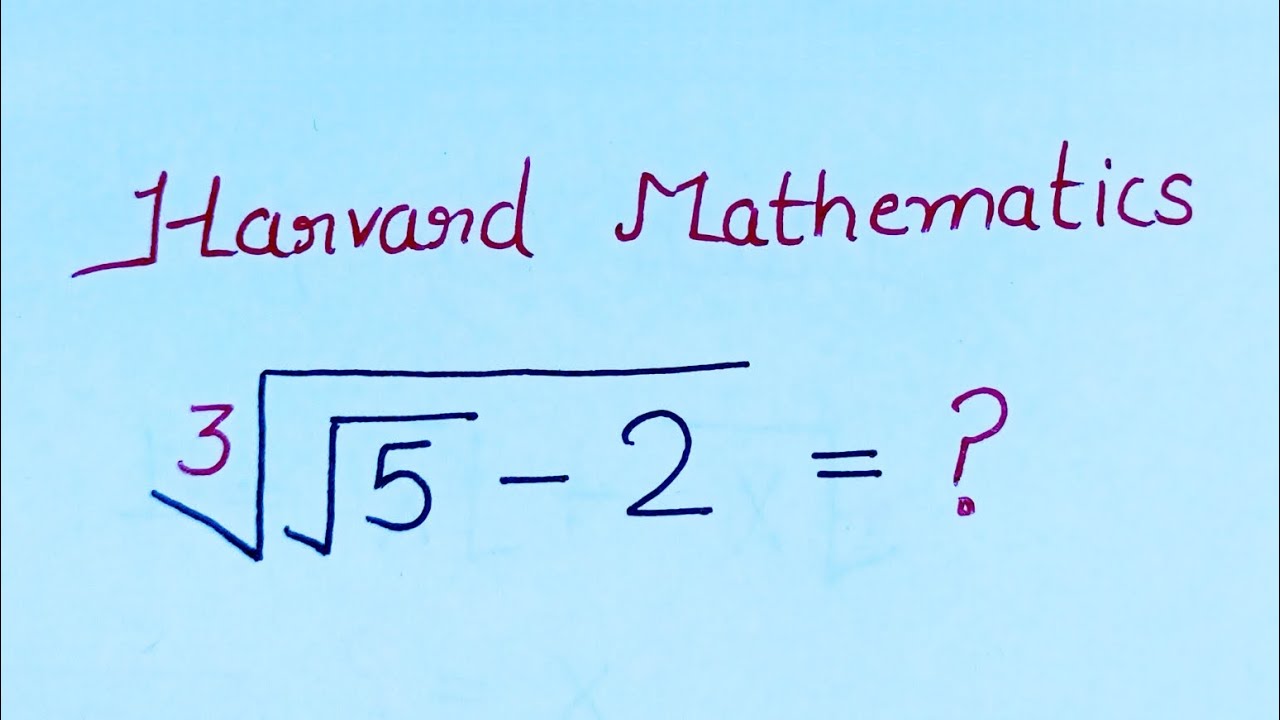 Harvard Mathematics
∛(√5 - 2) = ?